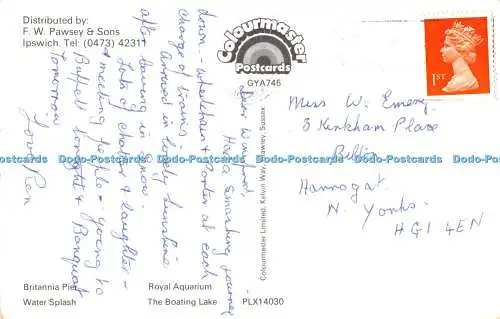 Distributed by:
F. W. Pawsey & Sons
Ipswich. Tel: (0473) 42311
Colourmaster
Postcards
GYA745
1ST
Dear Winifred,
Had a smashing journey
down - wheelchair & Porter at each
change of trains.
Arrived in lovely sunshine
after leaving in
Lots of chatter & laughter -
& meeting people - going to
Buffet tonight & Banquet
tomorrow.
Love Ron
Colourmaster Limited, Kelvin Way, Crawley, Sussex
Miss W. Emery
3 Kirkham Place
Harrogate
N. Yorks.
HG1 4EN
Dodo-Postcards Dodo-Postcards Dodo-Postcards Dodo-Postcards Dodo-Postcards Dodo-Postcards
Britannia Pier
Royal Aquarium
Water Splash
The Boating Lake
PLX14030